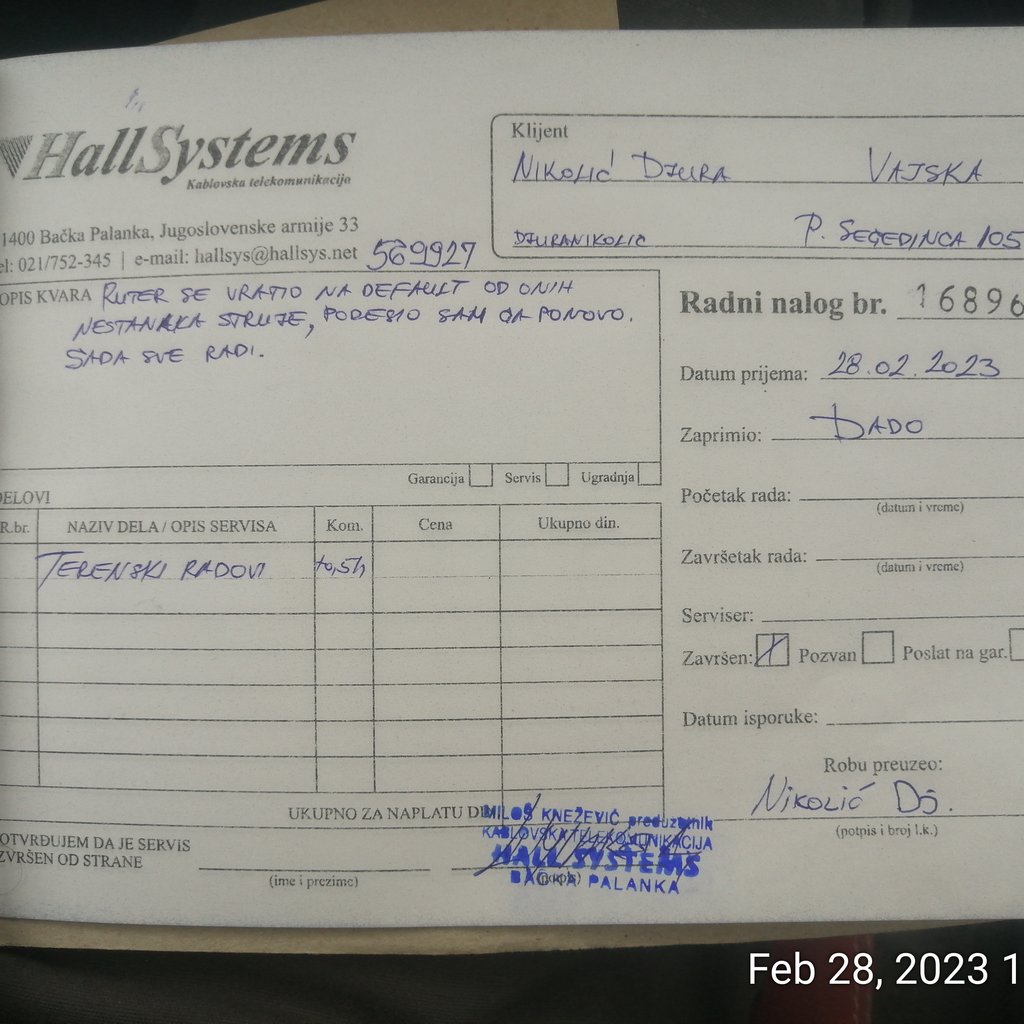 HallSystems
Kablovska telekomunikacija
1400 Bačka Palanka, Jugoslovenske armije 33
el: 021/752-345 | e-mail: hallsys@hallsys.net
569927
Klijent
NIKOLIĆ DJURA VAJSKA
DJURANIKOLIC P. SEGEDINCA 105
OPIS KVARA RUTER SE VRATIO NA DEFAULT OD ONIH
NESTANAKA STRUJE, PODESIO SAM GA PONOVO.
SADA SVE RADI.
Garancija Servis Ugradnja
Radni nalog br. 16896
Datum prijema: 28.02.2023
Zaprimio: DADO
Početak rada:
(datum i vreme)
Završetak rada:
(datum i vreme)
Serviser:
Završen: Pozvan Poslat na gar.
Datum isporuke:
Robu preuzeo:
NIKOLIĆ DJ.
(potpis i broj l.k.)
DELOVI
R.br. NAZIV DELA / OPIS SERVISA Kom. Cena Ukupno din.
TERENSKI RADOVI t0,5h
UKUPNO ZA NAPLATU
OTVRĐUJEM DA JE SERVIS
ZVRŠEN OD STRANE
(ime i prezime)
(potpis)
MILOŠ KNEŽEVIĆ preduzetnik
KABLOVSKA TELEKOMUNIKACIJA
HALL SYSTEMS
BAČKA PALANKA
Feb 28, 2023 1